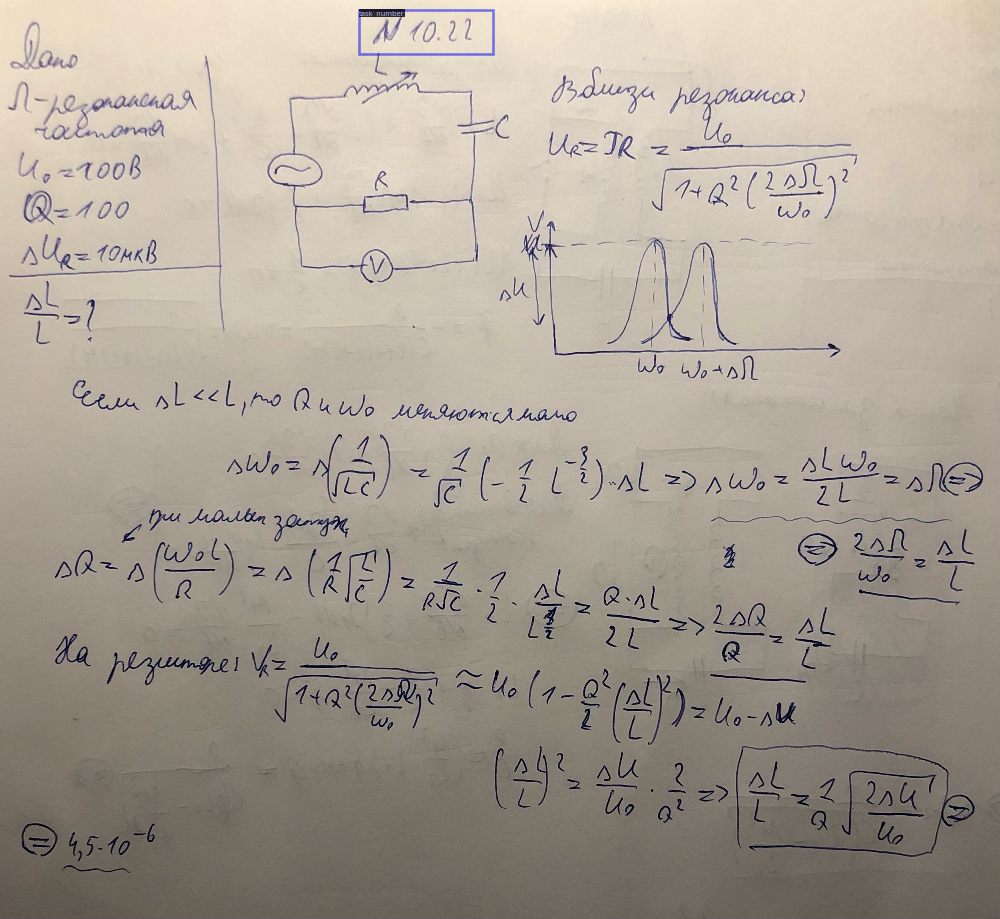 N 10.22
Дано
Ω-резонансная
частота
U₀=100В
Q=100
ΔU_R=10мкВ
ΔL/L=?
L
C
R
V
Вблизи резонанса:
U_R=IR = U₀/√(1+Q²(2ΔΩ/ω₀)²)
V
ΔU
ω₀ ω₀+ΔΩ
Если ΔL<<L, то Q и ω₀ меняются мало
Δω₀ = Δ(1/√(LC)) = 1/√C (-1/2 L^(-3/2))·ΔL => Δω₀ = ΔLω₀/2L = ΔΩ (=)
(=) 2ΔΩ/ω₀ = ΔL/L
при малых затух.
ΔQ = Δ(ω₀L/R) = Δ(1/R √(L/C)) = 1/(R√C) · 1/2 · ΔL/L^(1/2) = Q·ΔL/2L => 2ΔQ/Q = ΔL/L
На резисторе: V_R = U₀/√(1+Q²(2ΔΩ/ω₀)²) ≈ U₀(1-Q²/2 (ΔL/L)²) = U₀-ΔU
(ΔL/L)² = ΔU/U₀ · 2/Q² => ΔL/L = 1/Q √(2ΔU/U₀) (=)
(=) 4,5·10⁻⁶